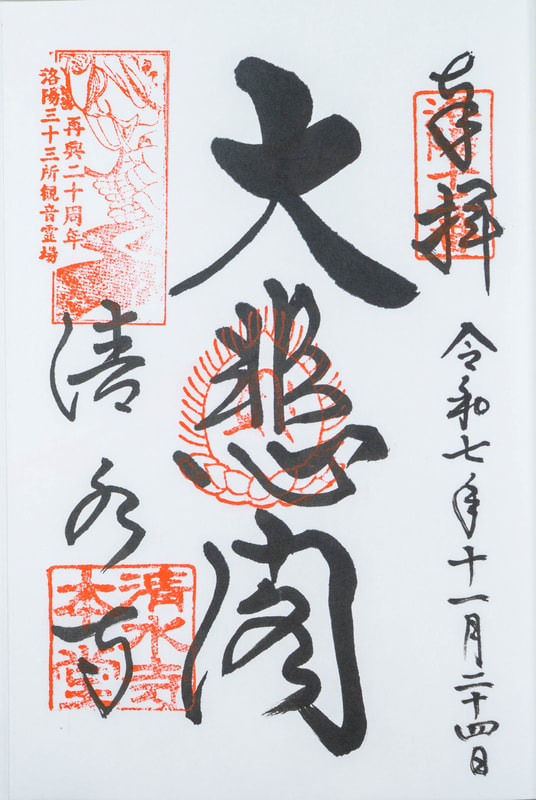 奉拝
令和七年十一月二十四日
大悲閣
再興二十周年
洛陽三十三所観音霊場
清水寺
清水寺
本堂